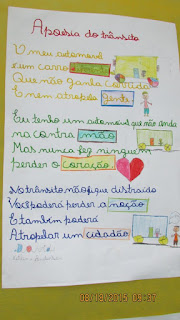 A poesia do trânsito
O meu automovel
É um carro
Que não ganha corrida
E nem atropela gente
Eu tenho um automovel que não anda
na contra mão
Mas nunca fez ninguem
perder o coração.
No trânsito não fique distraido
Você poderá perder a noção
E também poderá
Atropelar um cidadão
08/10/2015 08:37